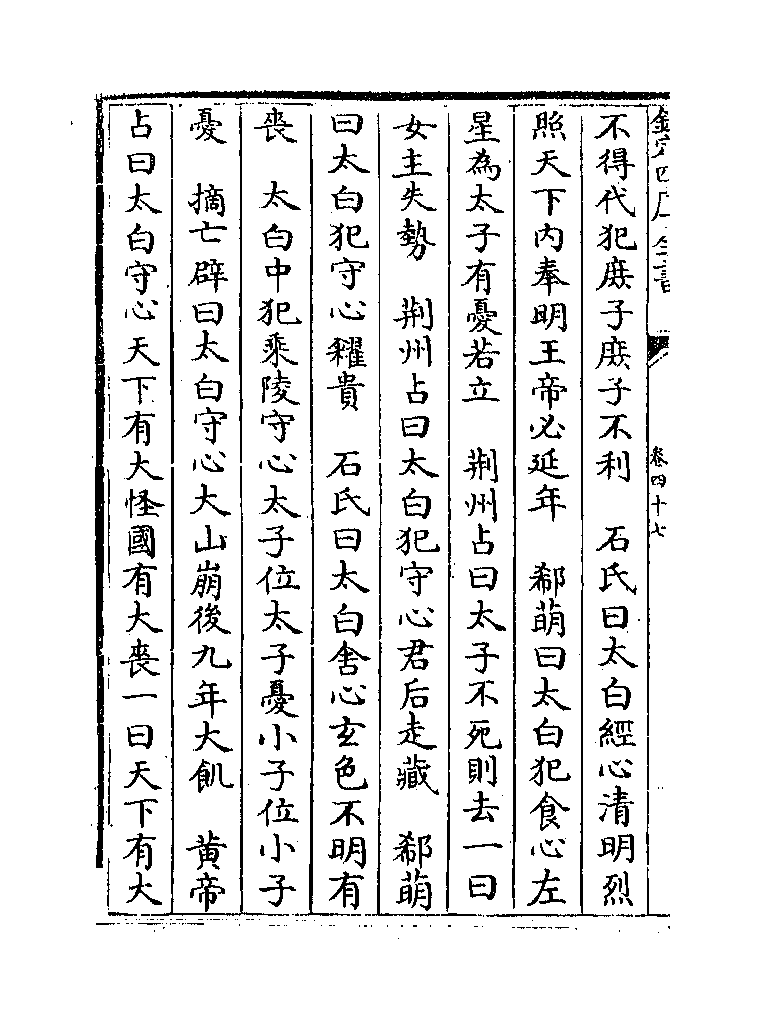 欽定四庫全書 卷四十七
不得代犯庶子庶子不利 石氏曰太白經心清明烈
照天下内奉明王帝必延年 郗萌曰太白犯食心左
星為太子有憂若立 荆州占曰太子不死則去一曰
女主失勢 荆州占曰太白犯守心君后走藏 郗萌
曰太白犯守心糴貴 石氏曰太白舍心玄色不明有
喪 太白中犯乘陵守心太子位太子憂小子位小子
憂 摘亡辟曰太白守心大山崩後九年大飢 黄帝
占曰太白守心天下有大怪國有大喪一曰天下有大